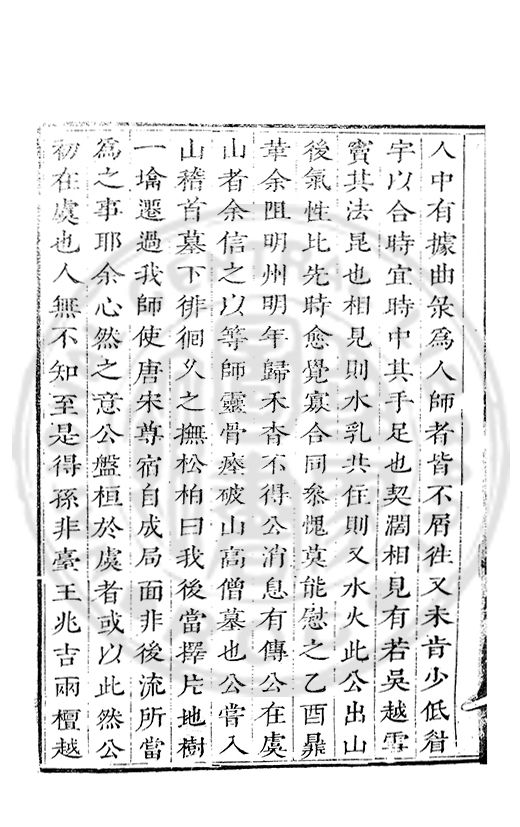 人中有據曲彔為人師者皆不屑徃又未肯少低眉
字以合時宜時中其手足也契濶相見有若吳越雪
竇其法昆也相見則水乳共住則又水火此公出山
後氣性比先時愈覺寡合同叅愧莫能慰之乙酉鼎
革余阻明州明年歸禾杳不得公消息有傳公在虞
山者余信之以等師靈骨瘞破山高僧墓也公嘗入
山稽首墓下徘徊久之撫松柏曰我後當擇片地樹
一塲遷過我師使唐宋尊宿自成局面非後流所當
為之事耶余心然之意公盤桓於虞者或以此然公
初在虞也人無不知至是得孫非臺王兆吉兩檀越